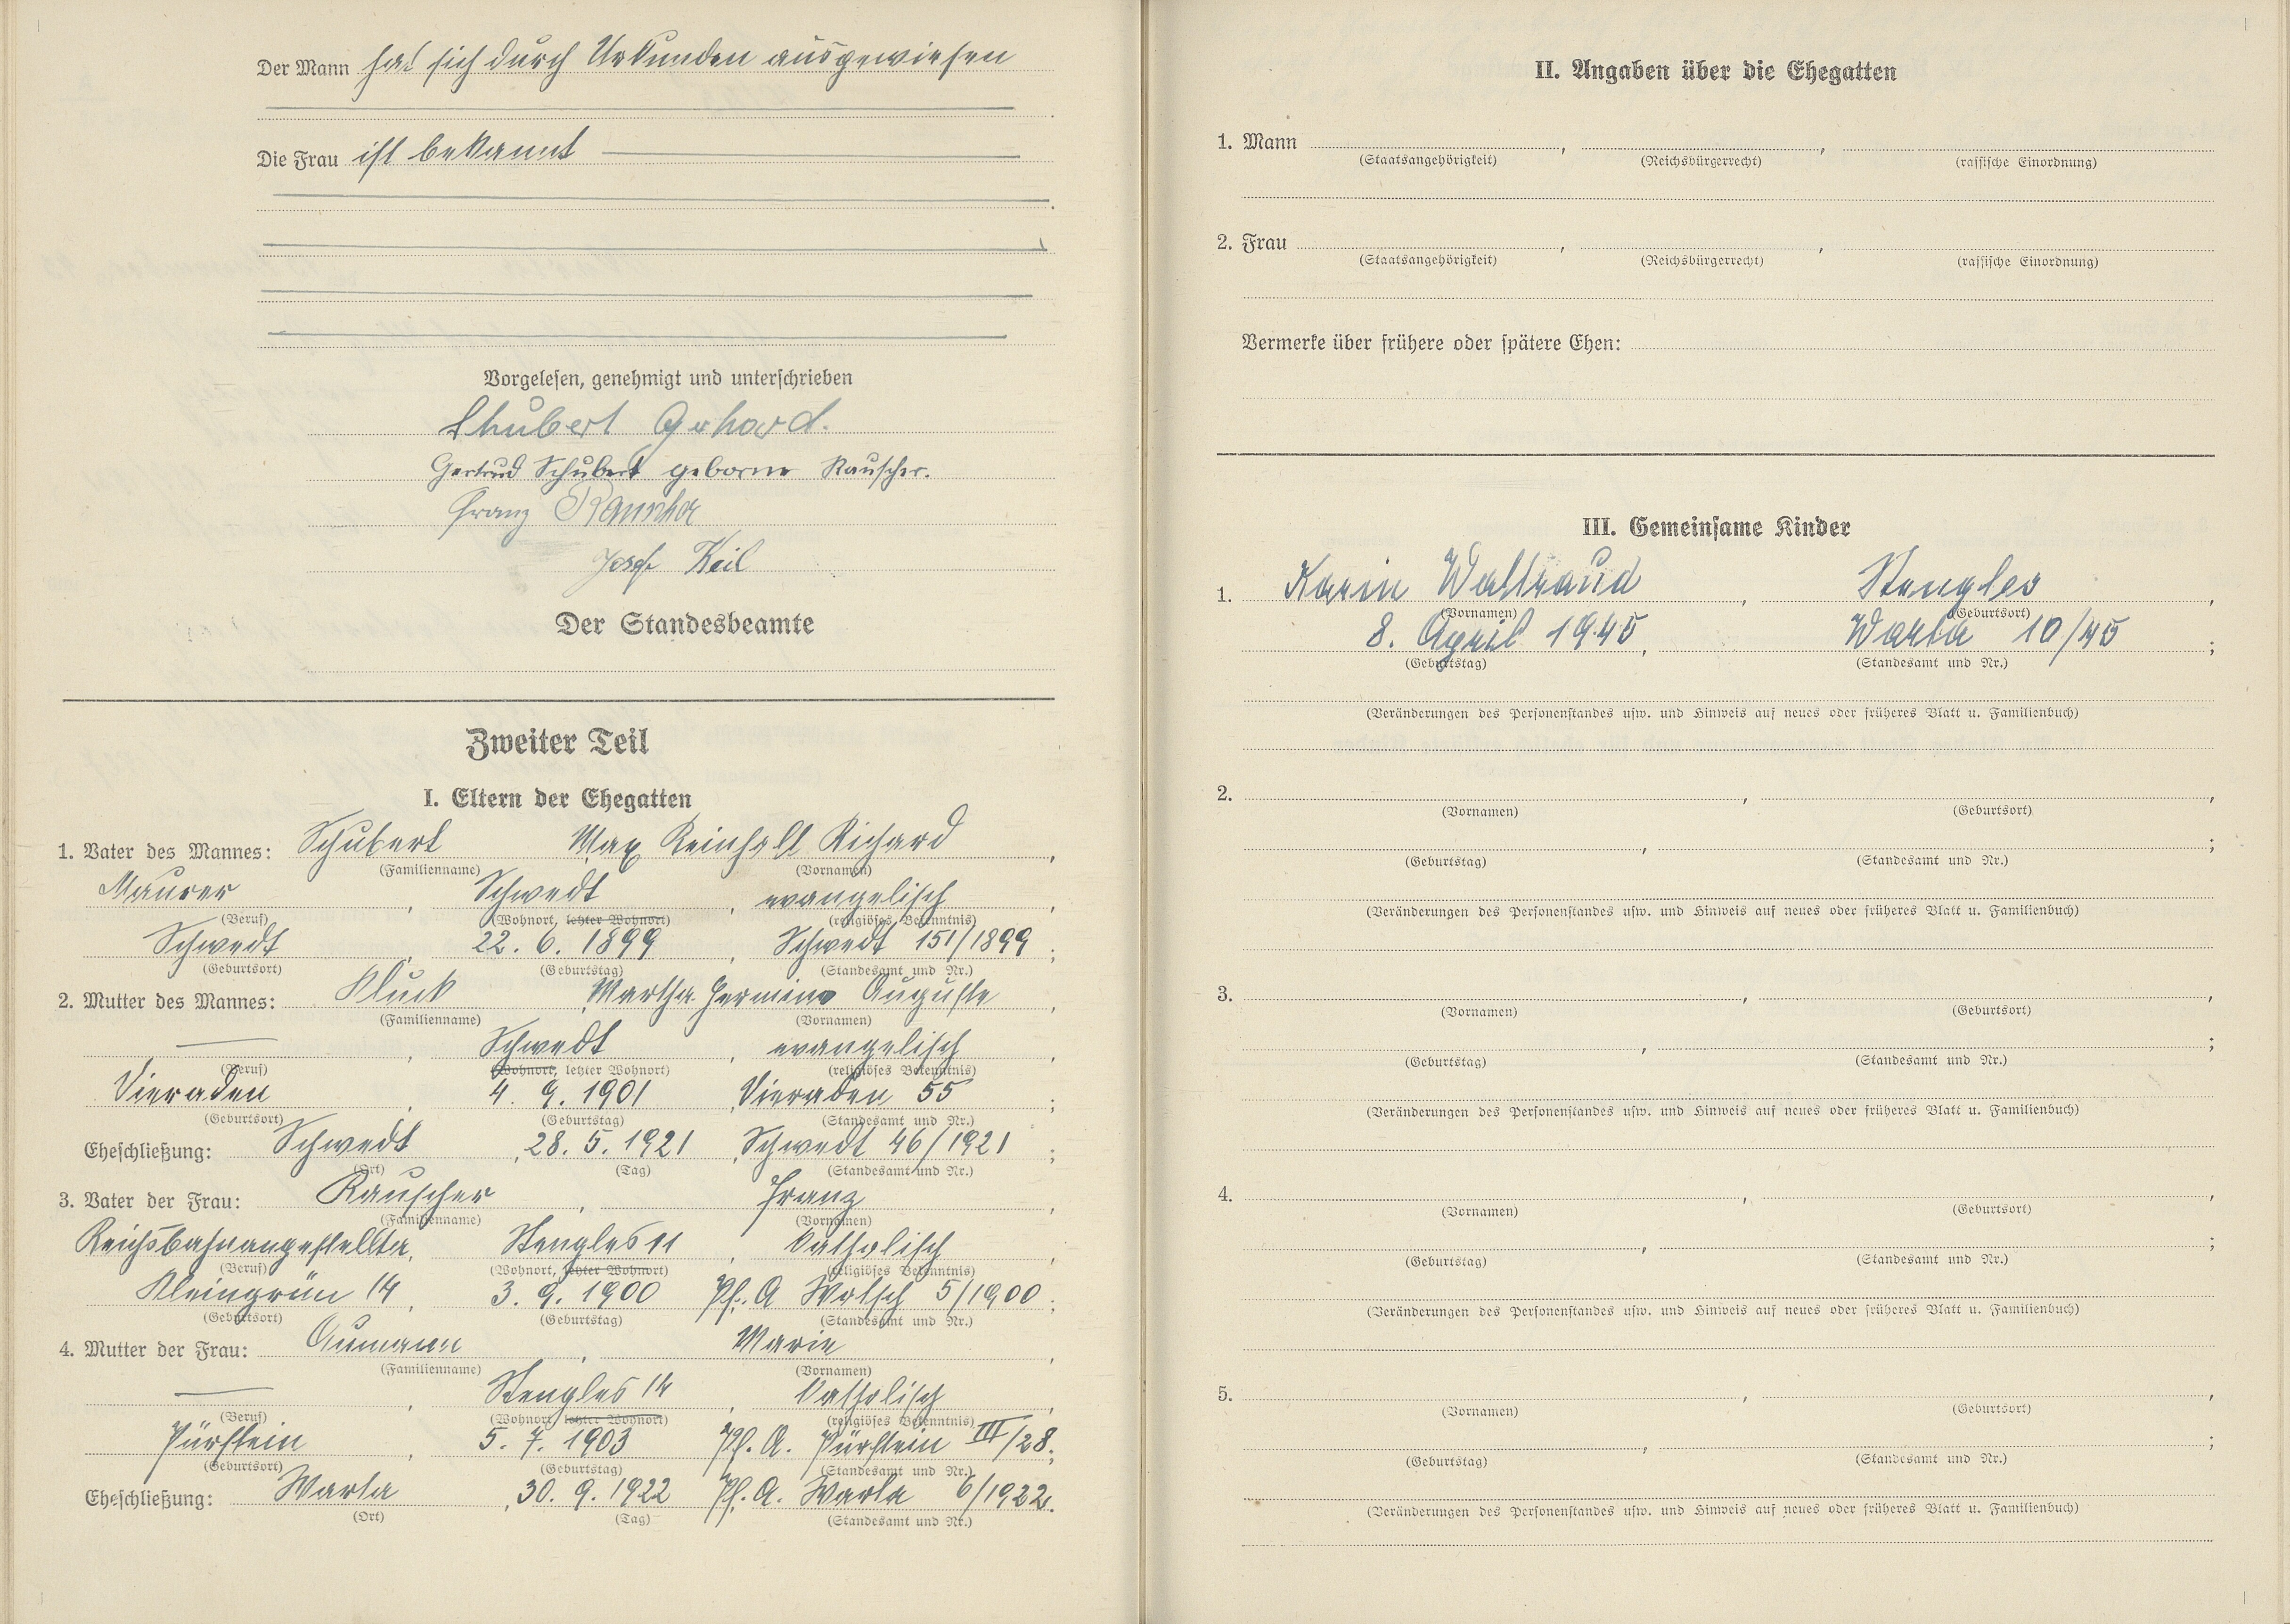 Der Mann hat sich durch Urkunden ausgewiesen
.
Die Frau ist bekannt
.
Vorgelesen, genehmigt und unterschrieben
Schubert Gerhard.
Gertrud Schubert geborne Rauscher.
Franz Rauscher
Josef Keil
Der Standesbeamte
Zweiter Teil
I. Eltern der Ehegatten
1. Vater des Mannes: Schubert Max Reinhold Richard,
(Familienname) (Vornamen)
Maurer, Schwedt, evangelisch,
(Beruf) (Wohnort, letzter Wohnort) (religiöses Bekenntnis)
Schwedt, 22. 6. 1899, Schwedt 151/1899;
(Geburtsort) (Geburtstag) (Standesamt und Nr.)
2. Mutter des Mannes: Kluck, Martha Hermine Auguste,
(Familienname) (Vornamen)
—, Schwedt, evangelisch,
(Beruf) (Wohnort, letzter Wohnort) (religiöses Bekenntnis)
Vieraden, 4. 9. 1901, Vieraden 55;
(Geburtsort) (Geburtstag) (Standesamt und Nr.)
Eheschließung: Schwedt, 28. 5. 1921, Schwedt 46/1921;
(Ort) (Tag) (Standesamt und Nr.)
3. Vater der Frau: Rauscher, Franz,
(Familienname) (Vornamen)
Reichsbahnangestellter, Stengles 11, katholisch,
(Beruf) (Wohnort, letzter Wohnort) (religiöses Bekenntnis)
Kleingrün 14, 3. 9. 1900 Pf. A Wotsch 5/1900;
(Geburtsort) (Geburtstag) (Standesamt und Nr.)
4. Mutter der Frau: Aumann, Marie,
(Familienname) (Vornamen)
—, Stengles 14, katholisch,
(Beruf) (Wohnort, letzter Wohnort) (religiöses Bekenntnis)
Pürstein, 5. 7. 1903 Pf. A. Pürstein III/28;
(Geburtsort) (Geburtstag) (Standesamt und Nr.)
Eheschließung: Warta, 30. 9. 1922 Pf. A. Warta 6/1922.
(Ort) (Tag) (Standesamt und Nr.)
II. Angaben über die Ehegatten
1. Mann , ,
(Staatsangehörigkeit) (Reichsbürgerrecht) (rassische Einordnung)
2. Frau , ,
(Staatsangehörigkeit) (Reichsbürgerrecht) (rassische Einordnung)
Vermerke über frühere oder spätere Ehen:
III. Gemeinsame Kinder
1. Karin Waltraud, Stengles,
(Vornamen) (Geburtsort)
8. April 1945, Warta 10/45;
(Geburtstag) (Standesamt und Nr.)
(Veränderungen des Personenstandes usw. und Hinweis auf neues oder früheres Blatt u. Familienbuch)
2. , ,
(Vornamen) (Geburtsort)
, ;
(Geburtstag) (Standesamt und Nr.)
(Veränderungen des Personenstandes usw. und Hinweis auf neues oder früheres Blatt u. Familienbuch)
3. , ,
(Vornamen) (Geburtsort)
, ;
(Geburtstag) (Standesamt und Nr.)
(Veränderungen des Personenstandes usw. und Hinweis auf neues oder früheres Blatt u. Familienbuch)
4. , ,
(Vornamen) (Geburtsort)
, ;
(Geburtstag) (Standesamt und Nr.)
(Veränderungen des Personenstandes usw. und Hinweis auf neues oder früheres Blatt u. Familienbuch)
5. , ,
(Vornamen) (Geburtsort)
, ;
(Geburtstag) (Standesamt und Nr.)
(Veränderungen des Personenstandes usw. und Hinweis auf neues oder früheres Blatt u. Familienbuch)